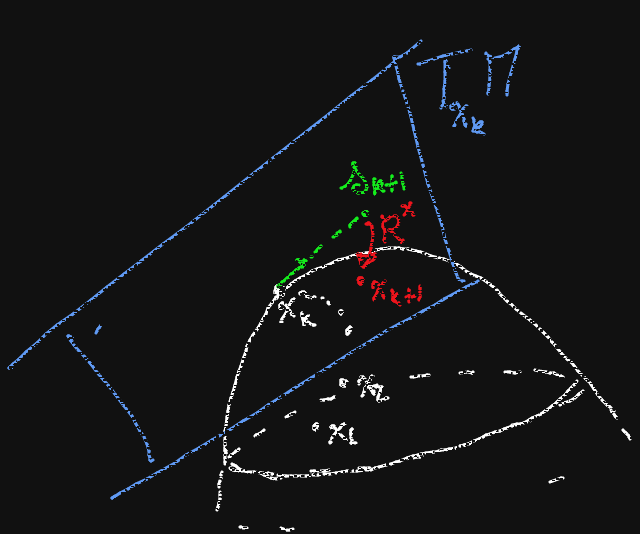 T_{x_k} M
s_{k+1}
R^x
x_{k+1}
x_k
x_2
x_1